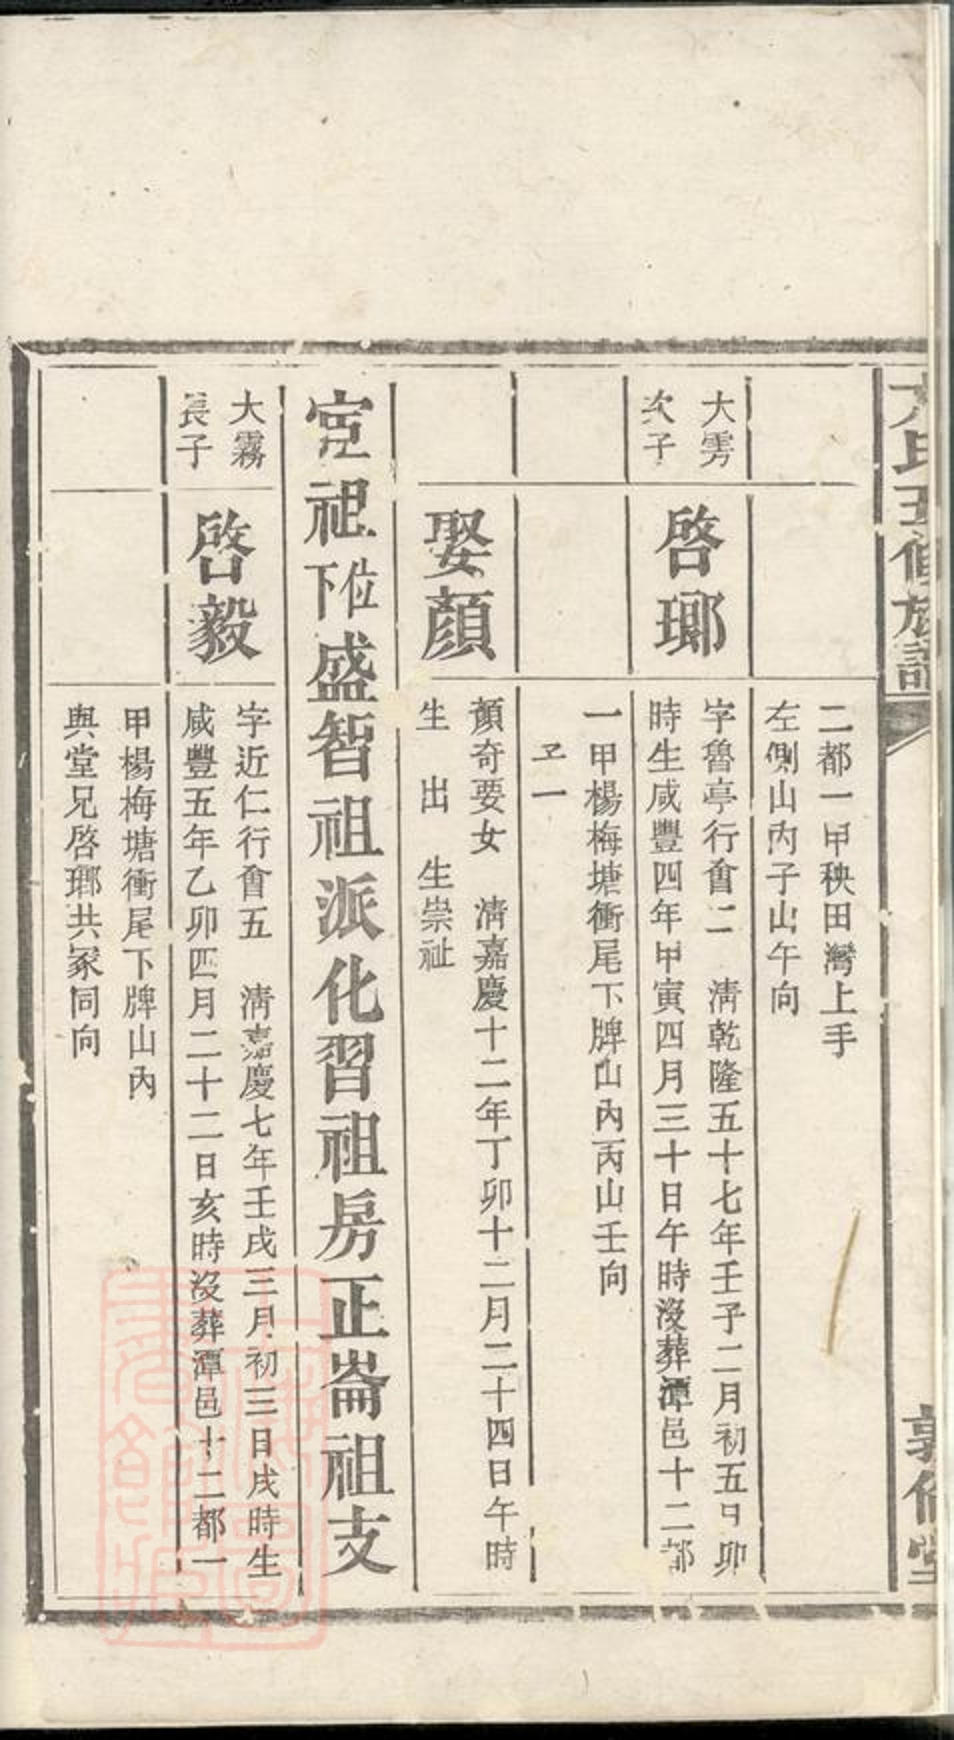 氏五修族譜
敦倫堂
二都一甲秧田灣上手
左側山內子山午向
大雱
次子
啓瑯
字魯亭行會二　清乾隆五十七年壬子二月初五日卯
時生咸豐四年甲寅四月三十日午時沒葬潭邑十二都
一甲楊梅塘衝尾下牌山內丙山壬向
㢧一
娶顏
顏奇要女　清嘉慶十二年丁卯十二月二十四日午時
生　出　生崇祉
定祖位下盛智祖派化習祖房正崙祖支
大霧
長子
啓毅
字近仁行會五　清嘉慶七年壬戌三月初三日戌時生
咸豐五年乙卯四月二十二日亥時沒葬潭邑十二都一
甲楊梅塘衝尾下牌山內
與堂兄啓瑯共冢同向